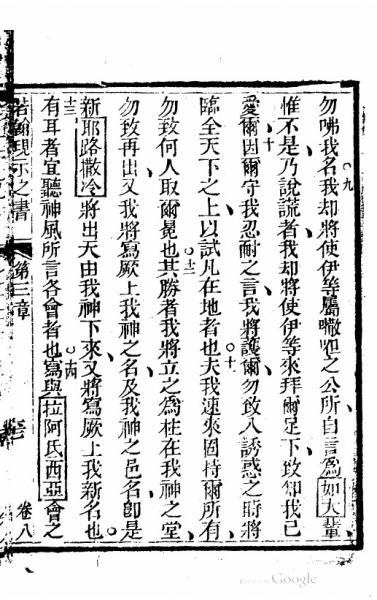 九
勿咈我名我却將使伊等屬之公所自言為如大輩
惟不是乃說謊者我却將使伊等來拜爾足下致知我已
十
愛爾因爾守我忍耐之言我將護爾勿致入誘惑之時將
十一
臨全天下之上以試凡在地者也夫我速來固持爾所有
十二
勿致何人取爾冕也其勝者我將立之為柱在我神之堂
勿致再出又我將寫厥上我神之名及我神之邑名即是
新耶路撒冷將出天由我神下來又將寫厥上我新名也
十三 十四
有耳者宜聽神風所言各會者也寫與拉阿氏西亞會之
若翰現示之書 第三章 卷八
Google